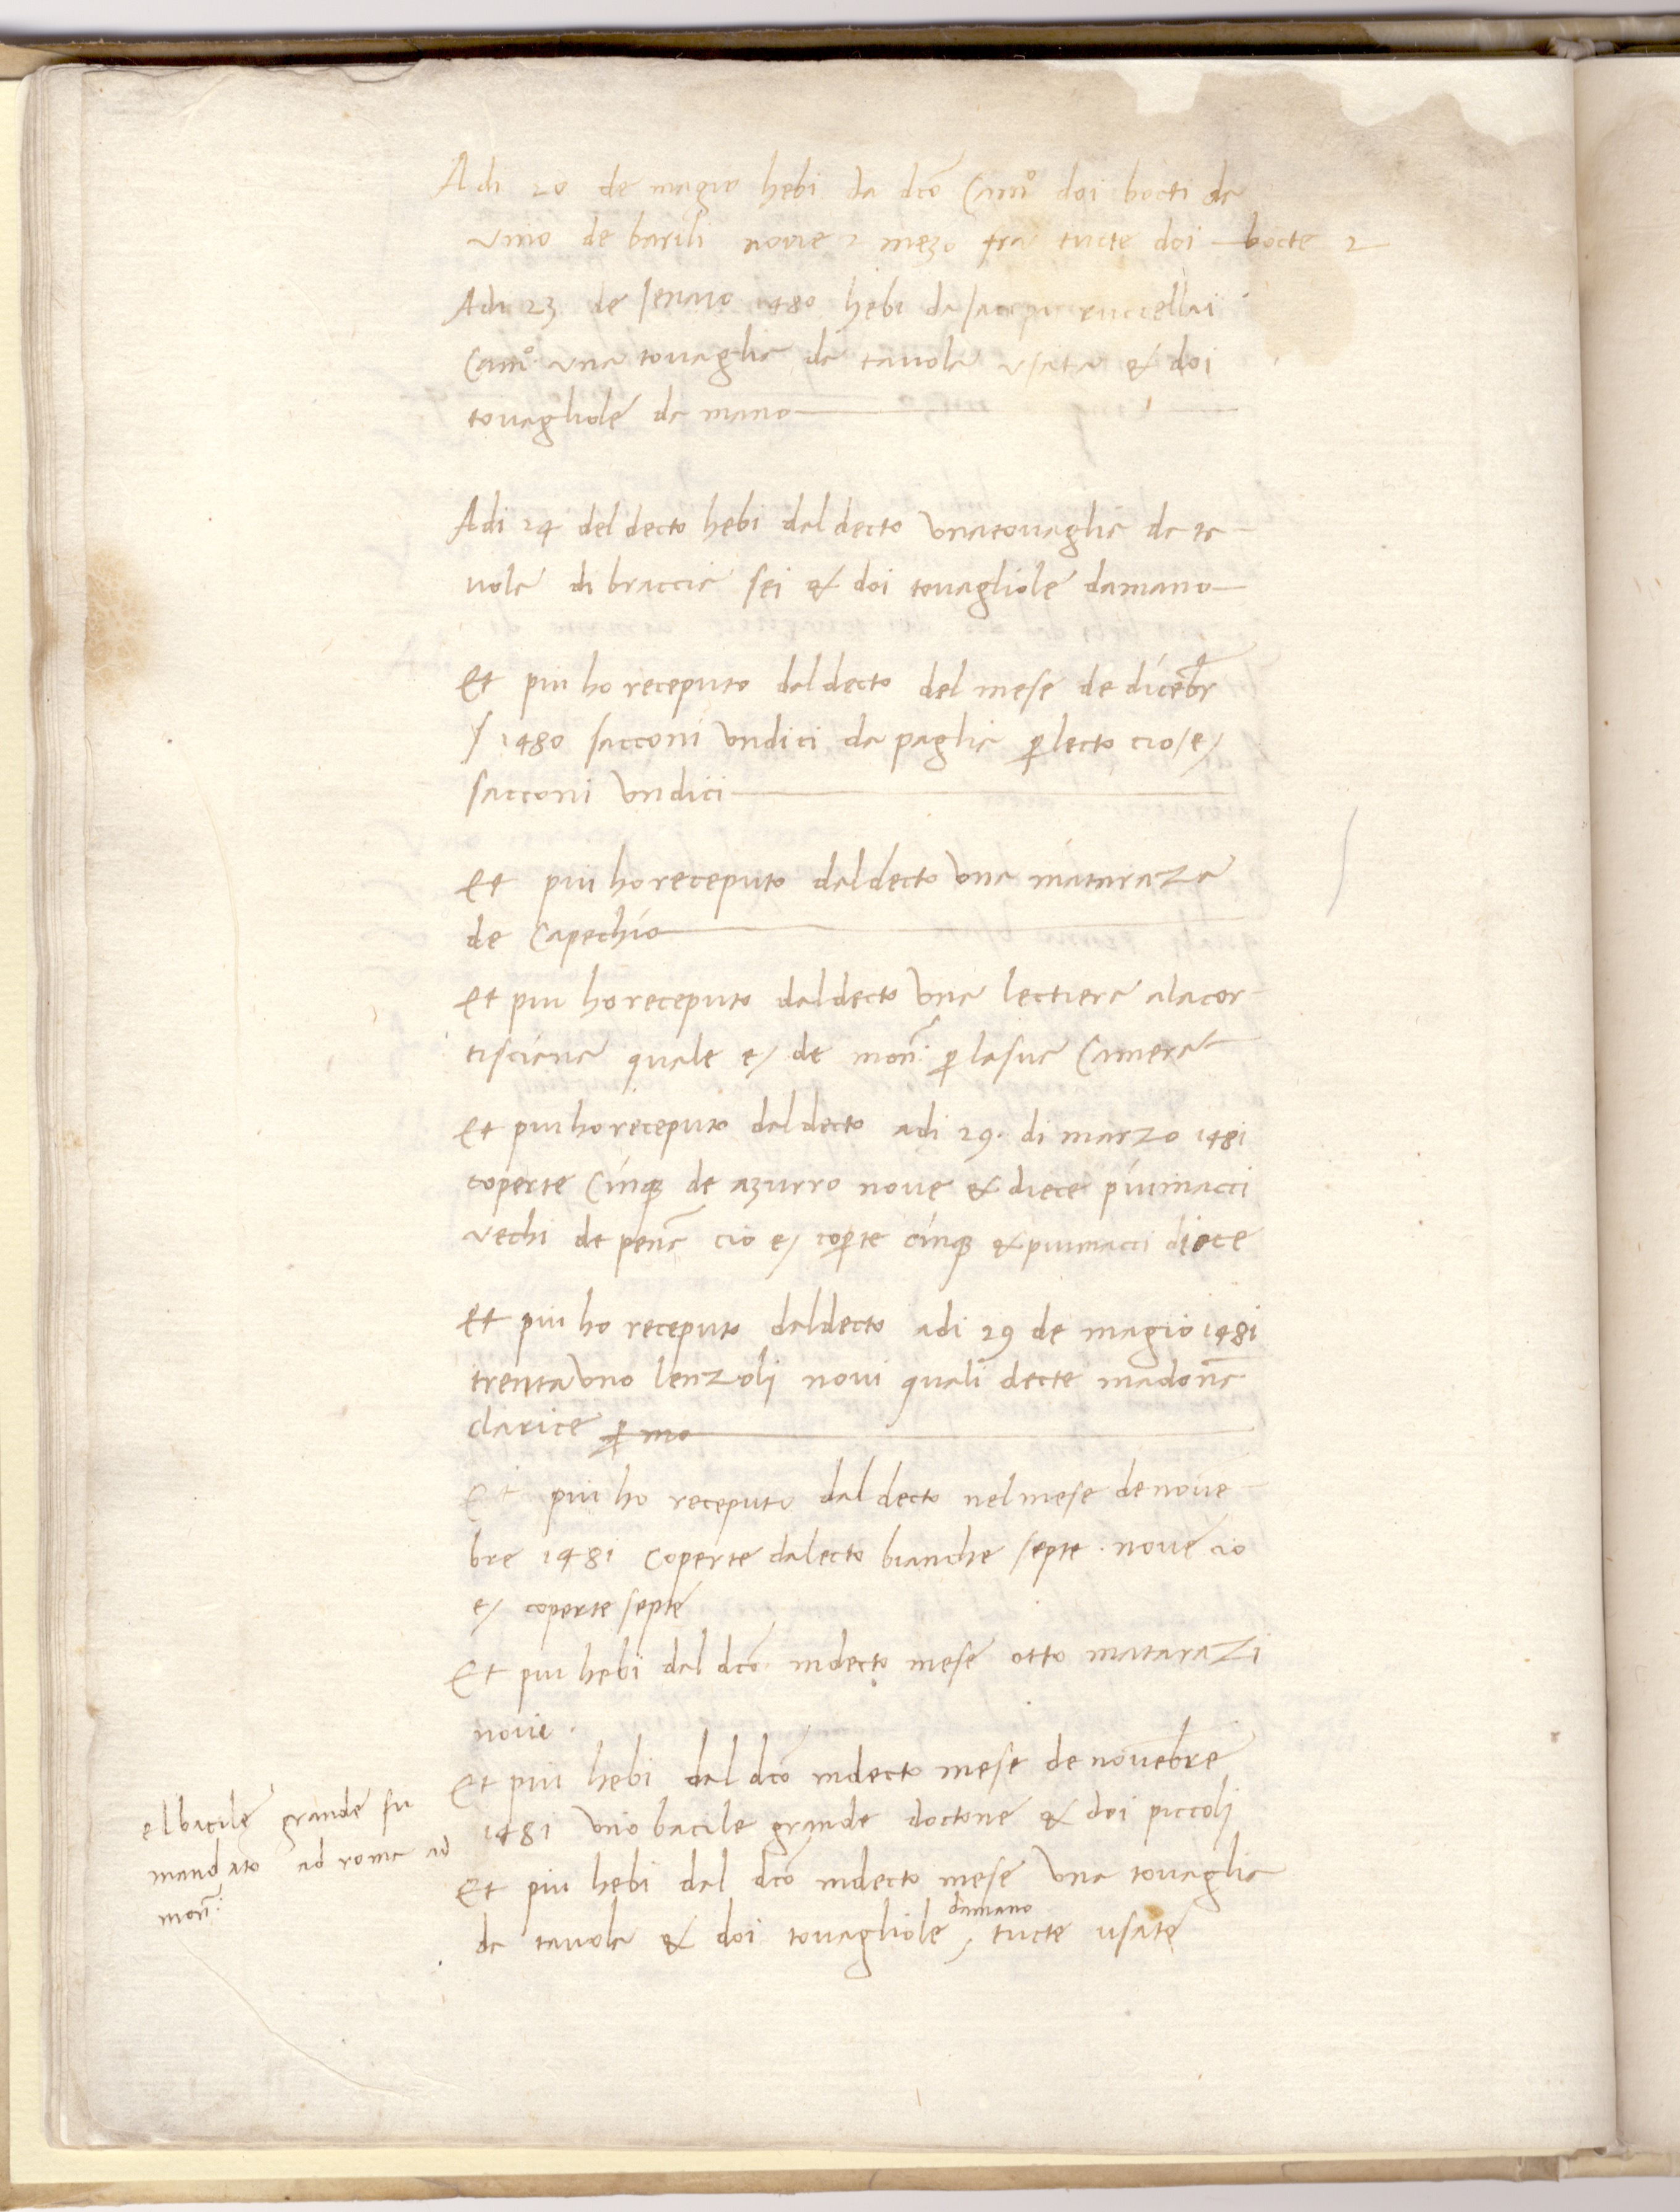 Adi 20 de magio hebi da dcō Camº doi bocti da
vino de barili nove 2 mezo fra tucte doi — bocte 2
Adi 23 de Ienaio 1480 hebi da Iacopo ruccellai
Camº una tovaglia da tavola usata & doi
tovagliole da mano
Adi 24 del decto hebi dal decto una tovaglia da ta-
vola di braccia sei & doi tovagliole da mano
Et piu ho receputo dal decto del mese de dicēbr
1480 sacconi undici da paglia ꝑ lecto cio / e /
sacconi undici
Et piu ho receputo dal decto una mataraza
de Capechio
Et piu ho receputo dal decto una lectiera ala cor-
tisciana quale e / de mon: ꝑ la sua Camera
Et piu ho receputo dal decto adi 29. di marzo 1481
coperte Cinqꝫ de azurro nove & diece piumacci
vechi de pēna cio e / coꝑte cinqꝫ & piumacci diece
Et piu ho receputo dal decto adi 29 de magio 1481
trenta uno lenzoli novi quali decte madōna
clarice ꝑ mo
Et piu ho receputo dal decto nel mese de nove-
bre 1481 Coperte da lecto bianche septe. nove cio
e / coperte septe
Et piu hebi dal dcō. in decto mese otto matarazi
novi.
Et piu hebi dal dcō in decto mese de novēbre
1481 uno bacile grande doctone & doi piccoli
el bacile grande fu
mandato ad roma ad
mon:
Et piu hebi dal dcō in decto mese una tovaglia
da tavola & doi tovagliole da mano / tucte usate